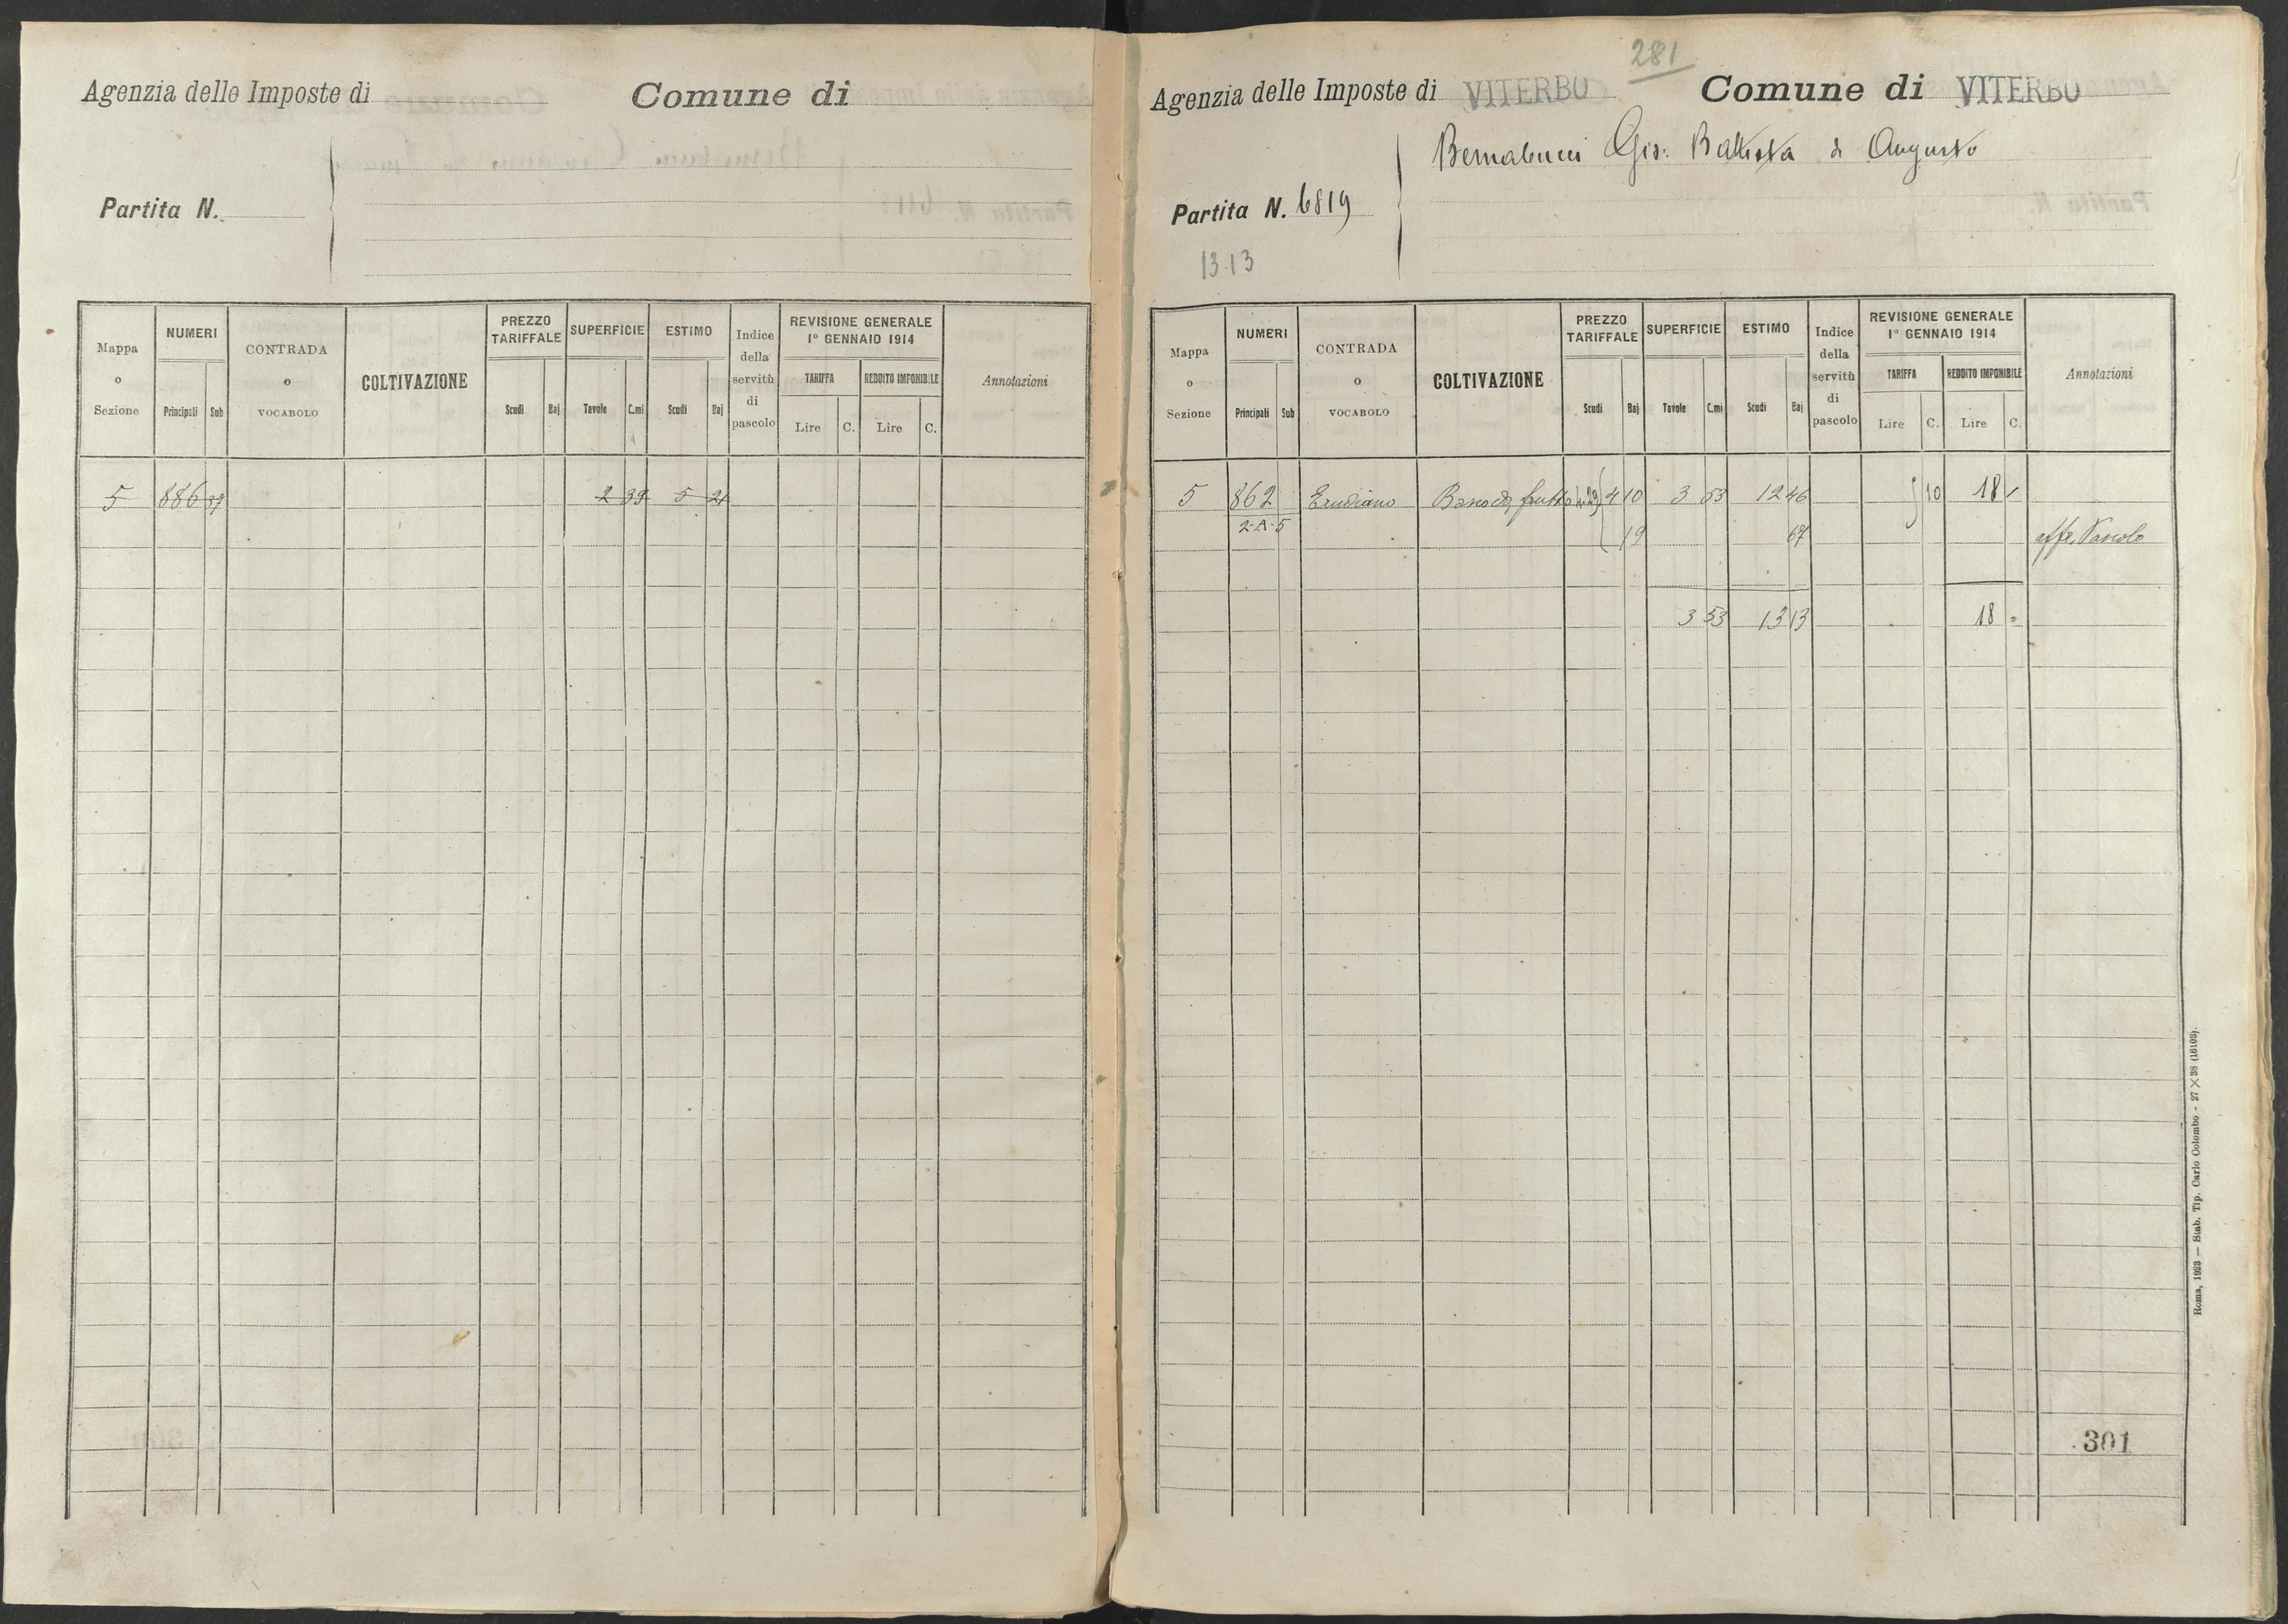 Agenzia delle Imposte di
Comune di
Partita N.
Mappa o Sezione
NUMERI
Principali Sub
CONTRADA o VOCABOLO
COLTIVAZIONE
PREZZO TARIFFALE
Scudi Baj
SUPERFICIE
Tavole C.mi
ESTIMO
Scudi Baj
Indice della servitù di pascolo
REVISIONE GENERALE
1° GENNAIO 1914
TARIFFA
Lire C.
REDDITO IMPONIBILE
Lire C.
Annotazioni
5 886 2 39 5 21
281
Agenzia delle Imposte di VITERBO
Comune di VITERBO
Bernabucci Gio: Battista di Augusto
Partita N. 6819
13.13
Mappa o Sezione
NUMERI
Principali Sub
CONTRADA o VOCABOLO
COLTIVAZIONE
PREZZO TARIFFALE
Scudi Baj
SUPERFICIE
Tavole C.mi
ESTIMO
Scudi Baj
Indice della servitù di pascolo
REVISIONE GENERALE
1° GENNAIO 1914
TARIFFA
Lire C.
REDDITO IMPONIBILE
Lire C.
Annotazioni
5 862 frutto 4 10 3 53 12 46 10 18
2-A-5 19 67 Pascolo
3 53 13 13 18 -
301
Roma, 1923 — Stab. Tip. Carlo Colombo - 27 × 38 (16103).